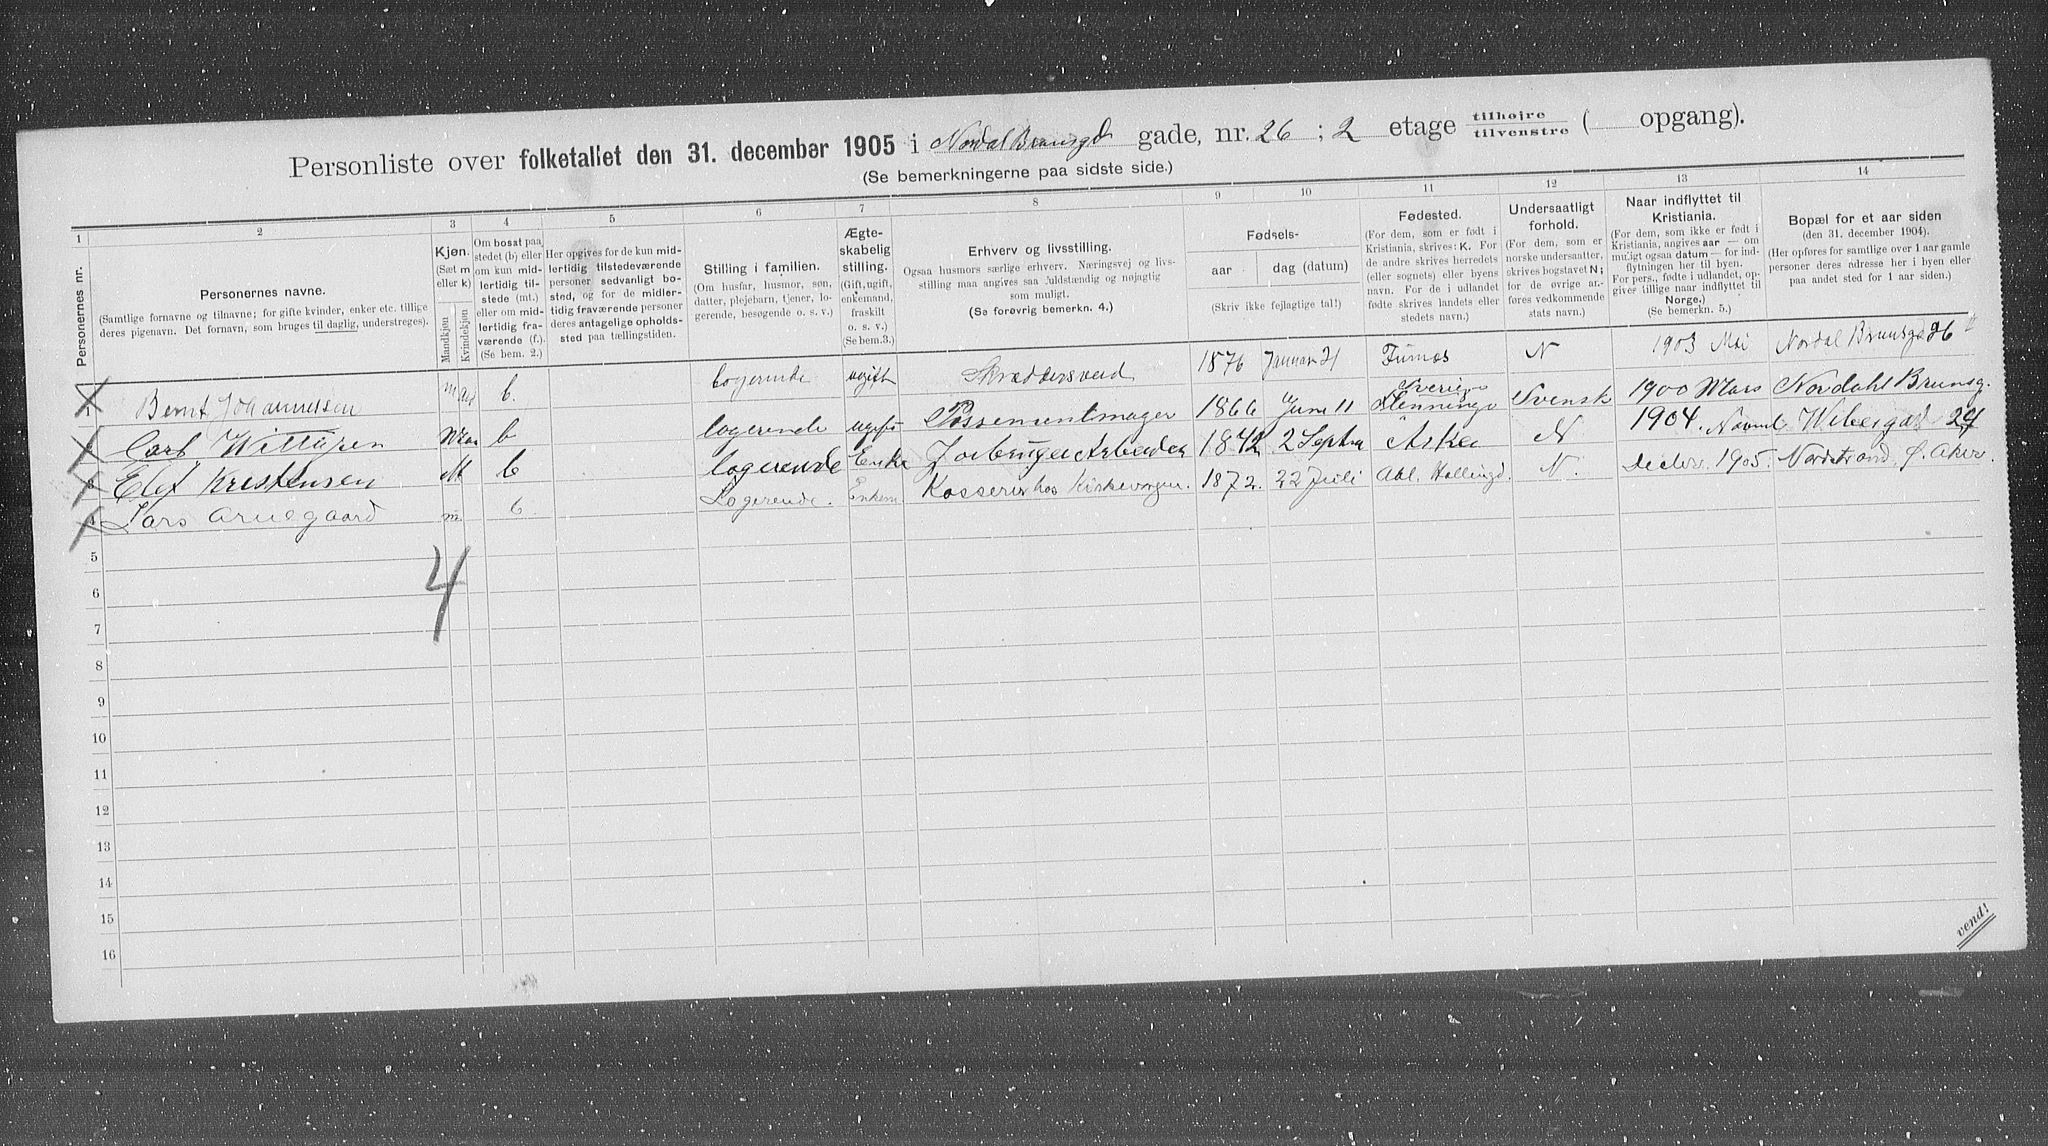 Personliste over folketallet den 31. december 1905 i Nordal Brunsgd gade, nr. 26 ; 2 etage tilhøjre tilvenstre ( opgang).
(Se bemerkningerne paa sidste side.)
1 2 3 4 5 6 7 8 9 10 11 12 13 14
Personernes nr.
Personernes navne.
(Samtlige fornavne og tilnavne; for gifte kvinder, enker etc. tillige
deres pigenavn. Det fornavn, som bruges til daglig, understreges).
Kjøn.
(Sæt m
eller k)
Mandkjøn
Kvindekjøn
Om bosat paa
stedet (b) eller
om kun mid-
lertidig til-
stede (mt.)
eller om mid-
lertidig fra-
værende (f.)
(Se bem. 2.)
Her opgives for de kun mid-
lertidig tilstedeværende
personer sedvanligt bo-
sted, og for de midler-
tidig fraværende personer
deres antagelige opholds-
sted paa tællingstiden.
Stilling i familien.
(Om husfar, husmor, søn,
datter, plejebarn, tjener, lo-
gerende, besøgende o. s. v.)
Ægte-
skabelig
stilling.
(Gift, ugift,
enkemand,
fraskilt
o. s. v.)
(Se bem.3.)
Erhverv og livsstilling.
Ogsaa husmors særlige erhverv. Næringsvej og livs-
stilling maa angives saa fuldstændig og nøjagtig
som muligt.
(Se forøvrig bemerkn. 4.)
Fødsels-
aar
dag (datum)
(Skriv ikke fejlagtige tal!)
Fødested.
(For dem, som er født i
Kristiania, skrives: K. For
de andre skrives herredets
(eller sognets) eller byens
navn. For de i udlandet
fødte skrives landets eller
stedets navn.)
Undersaatligt
forhold.
(For dem, som er
norske undersaatter,
skrives bogstavet N;
for de øvrige an-
føres vedkommende
stats navn.)
Naar indflyttet til
Kristiania.
(For dem, som ikke er født i
Kristiania, angives aar — om
muligt ogsaa datum — for ind-
flytningen her til byen.
For pers., fødte i udlandet, op-
giver tillige naar indflyttet til
Norge.)
(Se bemerkn. 5.)
Bopæl for et aar siden
(den 31. december 1904).
(Her opføres for samtlige over 1 aar gamle
personer deres adresse her i byen eller
paa andet sted for 1 aar siden.)
1 Bernt Johannessen b. logerende ugift Skræddersvend 1876 Januar 21 Furnæs N 1903 Mai Nordal Brunsgd 26
Carl b logerende ugift Possementmager 1866 June 11 Sverige Svensk 1900 Mars Nordahl Brunsg.
3 Elef Kristensen M b logerende Enke 1842 2 Septbr Asker N 1904. Novmb 24
4 Lars Aruegaard m. b Logerende. Enkem Kasserer hos Kirkevergen. 1872. 22 Juli Aal. Hallingd. N. Decbr. 1905. Nordstrand
4
5
6
7
8
9
10
11
12
13
14
15
16
vend!